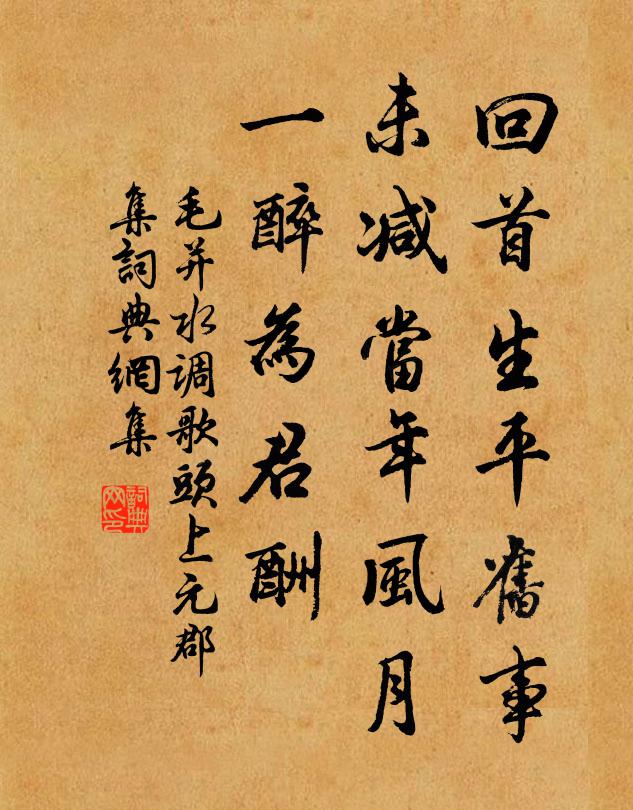 回首生平舊事
未减當年風月
一醉為君酬
毛并水调歌頭上元郡
集詞典網集
詞典网印